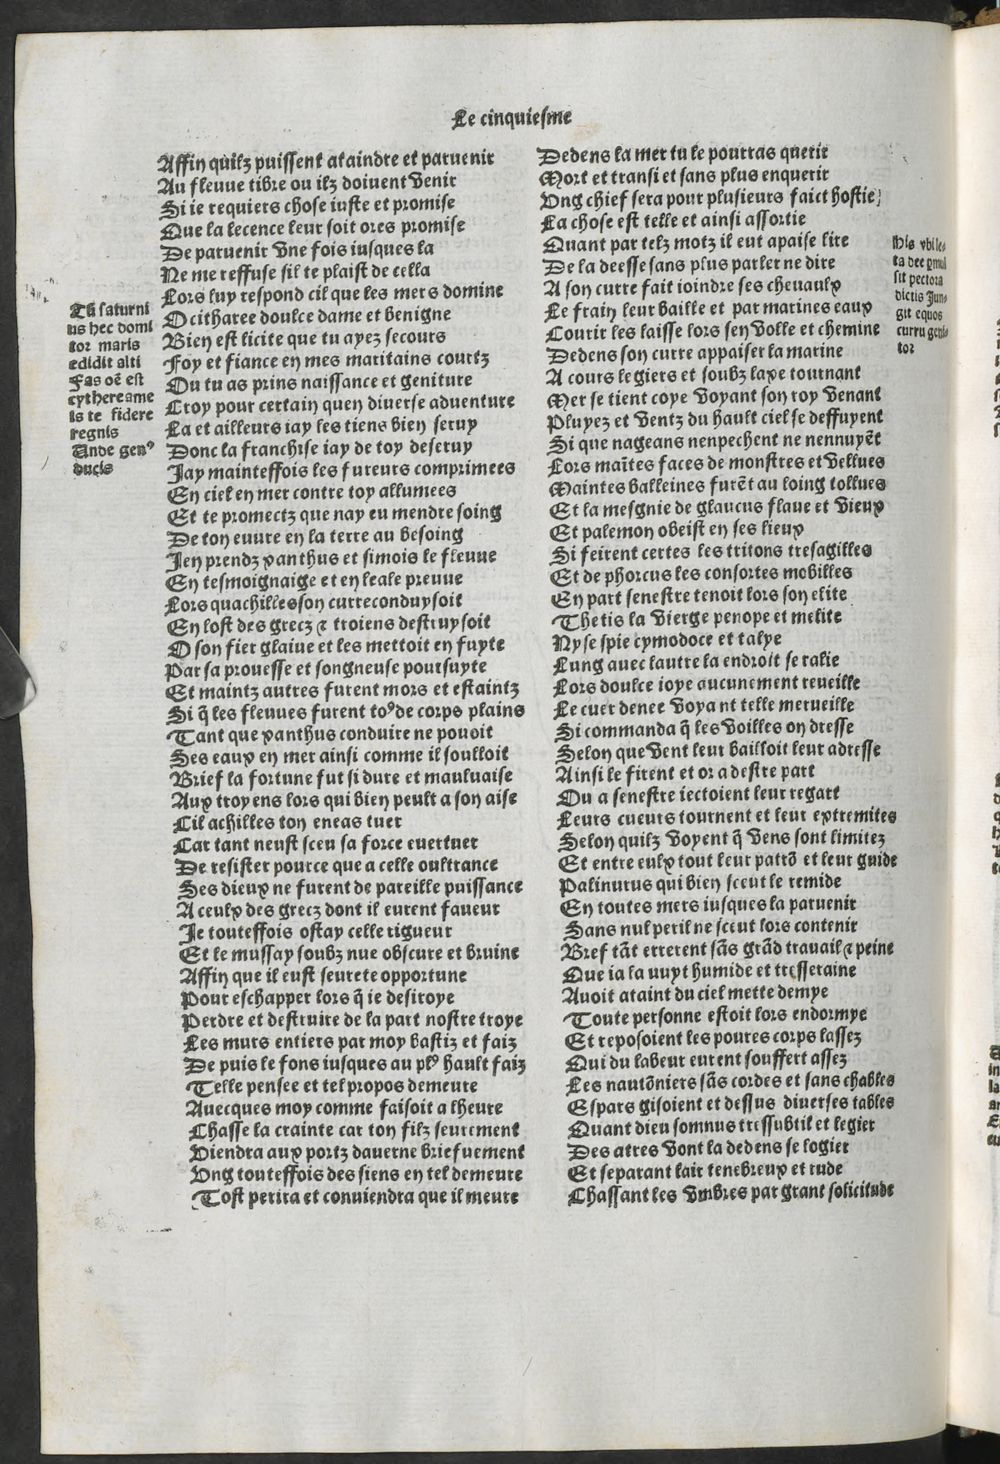 Le cinquiesme
Affin quilz puissent ataindre et paruenir
Au fleuue tibre ou ilz doiuent venir
Si ie requiers chose iuste et promise
Que la lecence leur soit ores promise
De paruenir vne fois iusques la
Ne me reffuse sil te plaist de cella
Lors luy respond cil que les mers domine
O citharee doulce dame et benigne
Bien est licite que tu ayez secours
Foy et fiance en mes maritains courtz
Ou tu as prins naissance et geniture
Croy pour certain quen diuerse aduenture
La et ailleurs iay les tiens bien seruy
Donc la franchise iay de toy deseruy
Jay mainteffois les fureurs comprimees
En ciel en mer contre toy allumees
Et te promectz que nay eu mendre soing
De ton euure en la terre au besoing
Jen prendz xanthus et simois le fleuue
En tesmoignaige et en leale preuue
Lors quachilles son curre conduysoit
En lost des grecz ⁊ troiens destruysoit
O son fier glaiue et les mettoit en fuyte
Par sa prouesse et songneuse poursuyte
Et maintz autres furent mors et estaintz
Si q̃ les fleuues furent toꝰ de corps plains
Tant que xanthus conduire ne pouoit
Ses eaux en mer ainsi comme il souloit
Brief la fortune fut si dure et mauluaise
Aux troyens lors qui bien peult a son aise
Cil achilles ton eneas tuer
Car tant neust sceu sa force euertuer
De resister pource que a celle oultrance
Ses dieux ne furent de pareille puissance
A ceulx des grecz dont il eurent faueur
Je touteffois ostay celle rigueur
Et le mussay soubz nue obscure et bruine
Affin que il eust seurete opportune
Pour eschapper lors q̃ ie desiroye
Perdre et destruire de la part nostre troye
Les murs entiers par moy bastiz et faiz
De puis le fons iusques au plꝰ hault faiz
Telle pensee et tel propos demeure
Auecques moy comme faisoit a lheure
Chasse la crainte car ton filz seurement
Viendra aux portz dauerne briefuement
Vng touteffois des siens en tel demeure
Tost perira et conuiendra que il meure
Tū saturni
us hec domi
tor maris
edidit alti
Fas oē est
cythereame
is te fidere
regnis
Unde genꝰ
ducis
Dedens la mer tu le pourras querir
Mort et transi et sans plus enquerir
Vng chief sera pour plusieurs faict hostie
La chose est telle et ainsi assortie
Quant par telz motz il eut apaise lire
De la deesse sans plus parler ne dire
A son curre fait ioindre ses cheuaulx
Le frain leur baille et par marines eaux
Courir les laisse lors sen volle et chemine
Dedens son curre appaiser la marine
A cours legiers et soubz laxe tournant
Mer se tient coye voyant son roy venant
Pluyez et ventz du hault ciel se deffuyent
Si que nageans nenpechent ne nennuyēt
Lors maītes faces de monstres et vellues
Maintes balleines furēt au loing tollues
Et la mesgnie de glaucus flaue et vieux
Et palemon obeist en ses lieux
Si feirent certes les tritons tresagilles
Et de phorcus les consortes mobilles
En part senestre tenoit lors son elite
Thetis la vierge penope et melite
Nyse spie cymodoce et talye
Lung auec lautre la endroit se ralie
Lors doulce ioye aucunement reueille
Le cuer denee voyant telle merueille
Si commanda q̃ les voilles on dresse
Selon que vent leur bailloit leur adresse
Ainsi le firent et or a destre part
Ou a senestre iectoient leur regart
Leurs cueurs tournent et leur extremites
Selon quilz voyent q̃ vens sont limitez
Et entre eulx tout leur patrō et leur guide
Palinurus qui bien sceut le remide
En toutes mers iusques la paruenir
Sans nul peril ne sceut lors contenir
Bref tāt errerent sās grād trauail ⁊ peine
Que ia la nuyt humide et tresseraine
Auoit ataint du ciel mette demye
Toute personne estoit lors endormye
Et reposoient les poures corps lassez
Qui du labeur eurent souffert assez
Les nautōniers sās cordes et sans chables
Espars gisoient et dessus diuerses tables
Quant dieu somnus tressubtil et legier
Des atres vont la dedens se logier
Et separant lair tenebreux et rude
Chassant les vmbres par grant solicitude
His vbi le
ta dee ꝑmul
sit pectora
dictis Jun
git equos
curru geni
tor